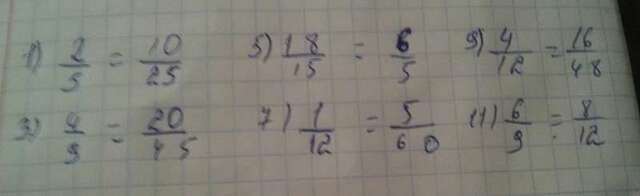 1) 2/5 = 10/25 5) 18/15 = 6/5 9) 4/12 = 16/48
3) 4/9 = 20/45 7) 1/12 = 5/60 11) 6/9 = 8/12